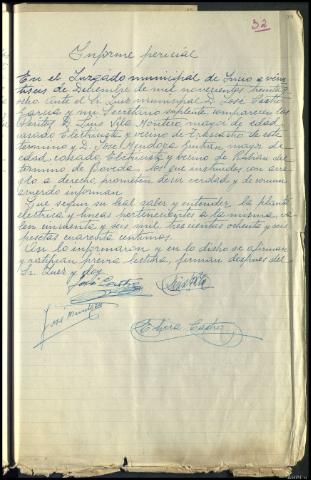 32
Informe pericial
En el Juzgado municipal de Incio a vein
tiseis de Diciembre de mil novecientos treinta y
ocho ante el Sr. Juez municipal D. Jose Castro
Garcia y mi Secretario suplente comparecen los
Peritos D. Lino Vila Montero mayor de edad
casado Electricista y vecino de de este
termino y D. Jose Mendoza mayor de
edad Electricista y vecino de Rubian del
termino de Boveda, los que instruidos con arre
glo a derecho prometen decir verdad y de comun
acuerdo informan
Que segun su leal saber y entender la planta
electrica y lineas pertenecientes a la misma, va
len cincuenta y seis mil trescientas ochenta y seis
pesetas cuarenta centimos.
Asi lo informaron y en lo dicho se afirman
y ratifican previa lectura, firman despues del
Sr. Juez y doy
Jose Castro
Jose Mendoza
Elvira Castro